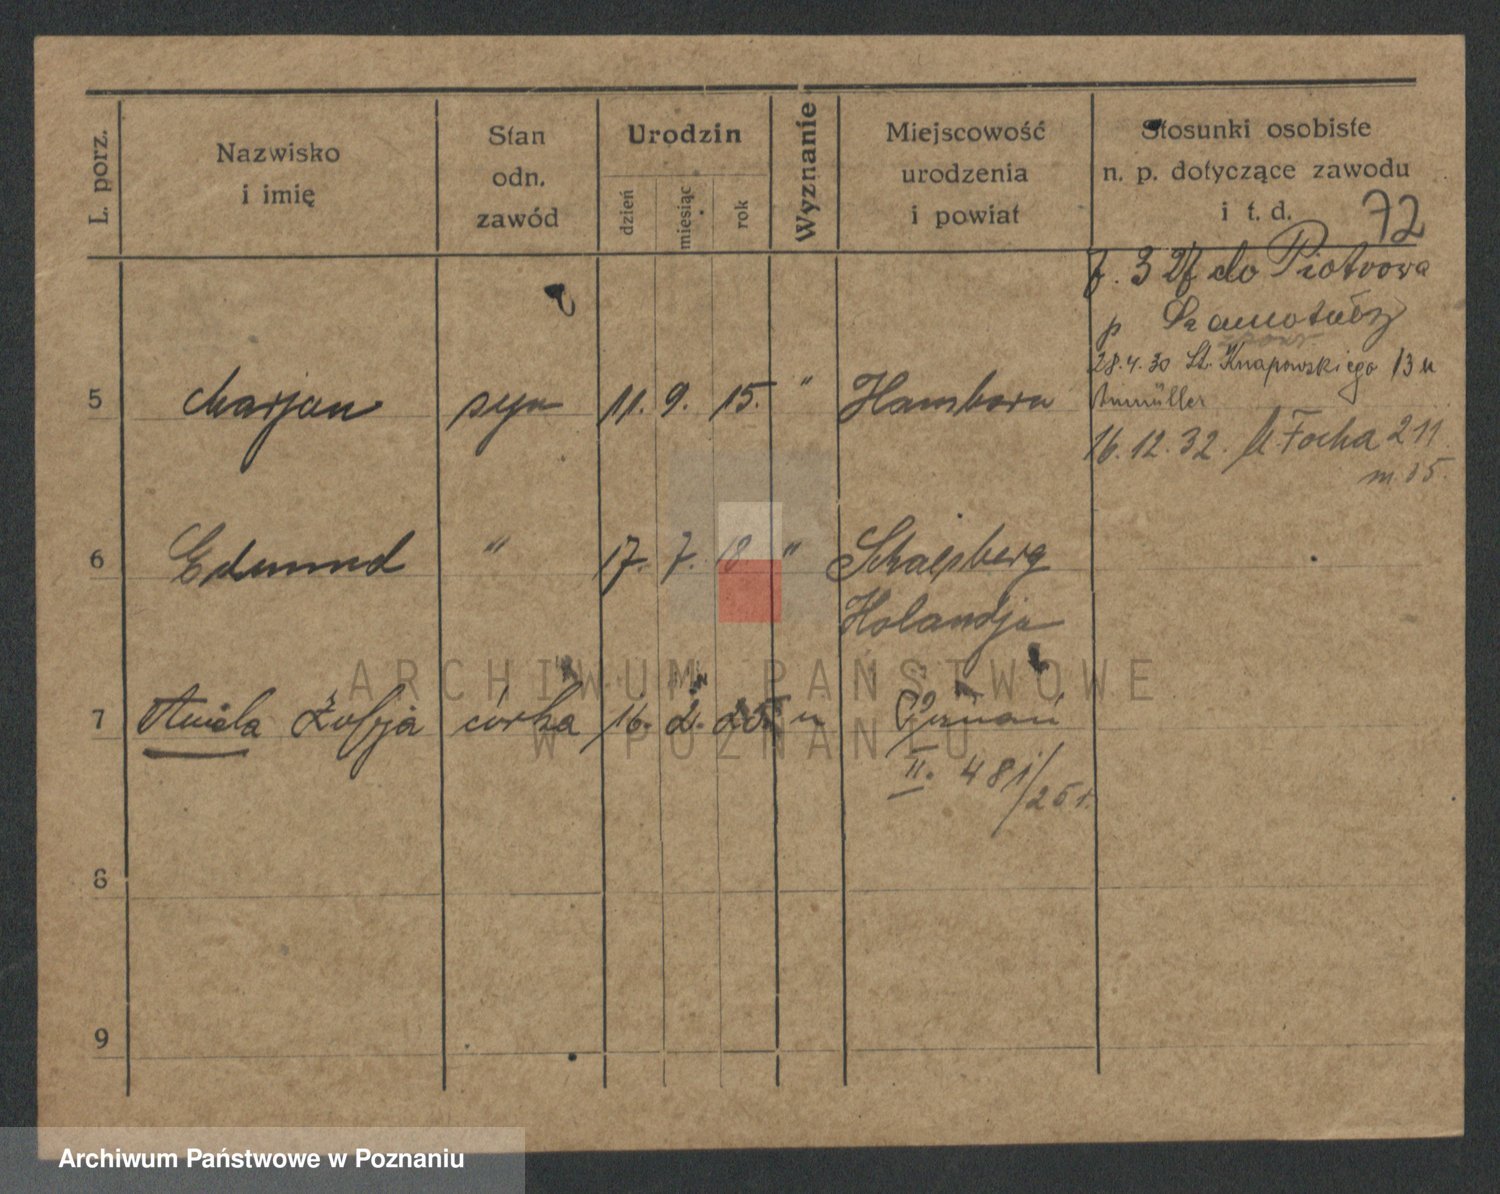 L. porz.
Nazwisko
i imię
Stan
odn.
zawód
Urodzin
dzień
miesiąc
rok
Wyznanie
Miejscowość
urodzenia
i powiat
Stosunki osobiste
n. p. dotyczące zawodu
i t. d.
72
do Piotrowa
p Szamotuły
28.4.30 St. Knapowskiego 13 u
16.12.32. Focha 211
m. 15.
5 Marjan syn 11. 9. 15. " Hamborn
6 Edmund " 17. 7. 18 "
Holandja
7 Aniela Zofja córka 16. 2. 25. " Poznań
II. 481/25 r.
8
9
ARCHIWUM PAŃSTWOWE
W POZNANIU
Archiwum Państwowe w Poznaniu